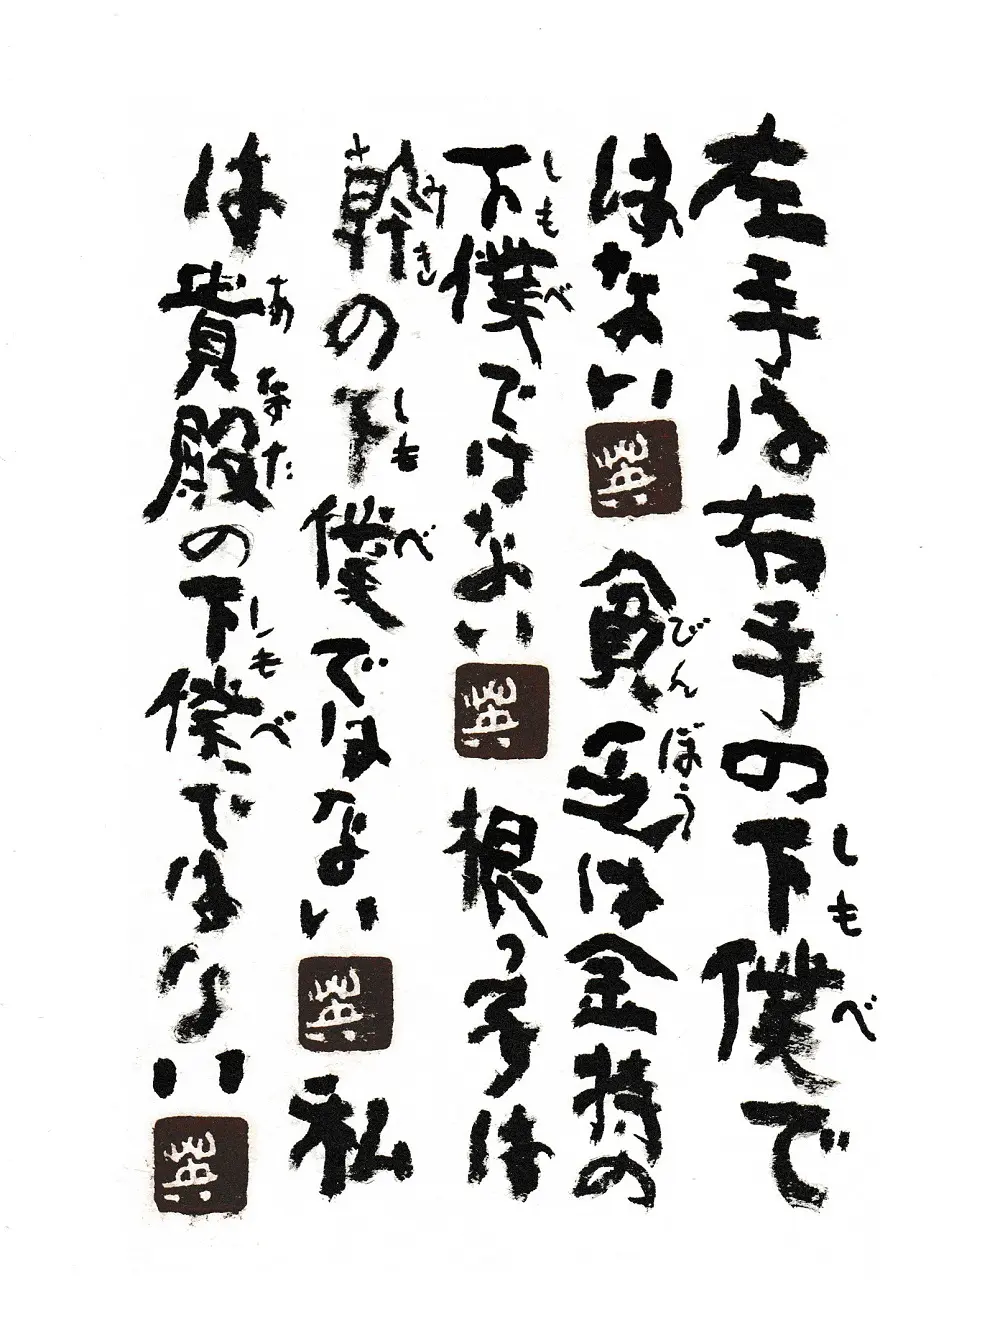 左手は右手の下僕で
しもべ
はない 貧乏は金持の
びんぼう
下僕ではない 根っ子は
しもべ
幹の下僕ではない 私
みき しもべ
は貴殿の下僕ではない
あなた しもべ